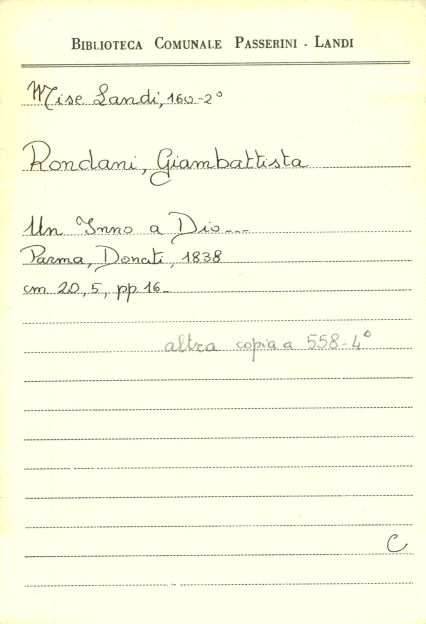 BIBLIOTECA COMUNALE PASSERINI - LANDI
Misc Landi, 160-2°
Rondani, Giambattista
Un Inno a Dio...
Parma, Donati, 1838
cm 20,5, pp 16.
altra copia a 558-4°
C